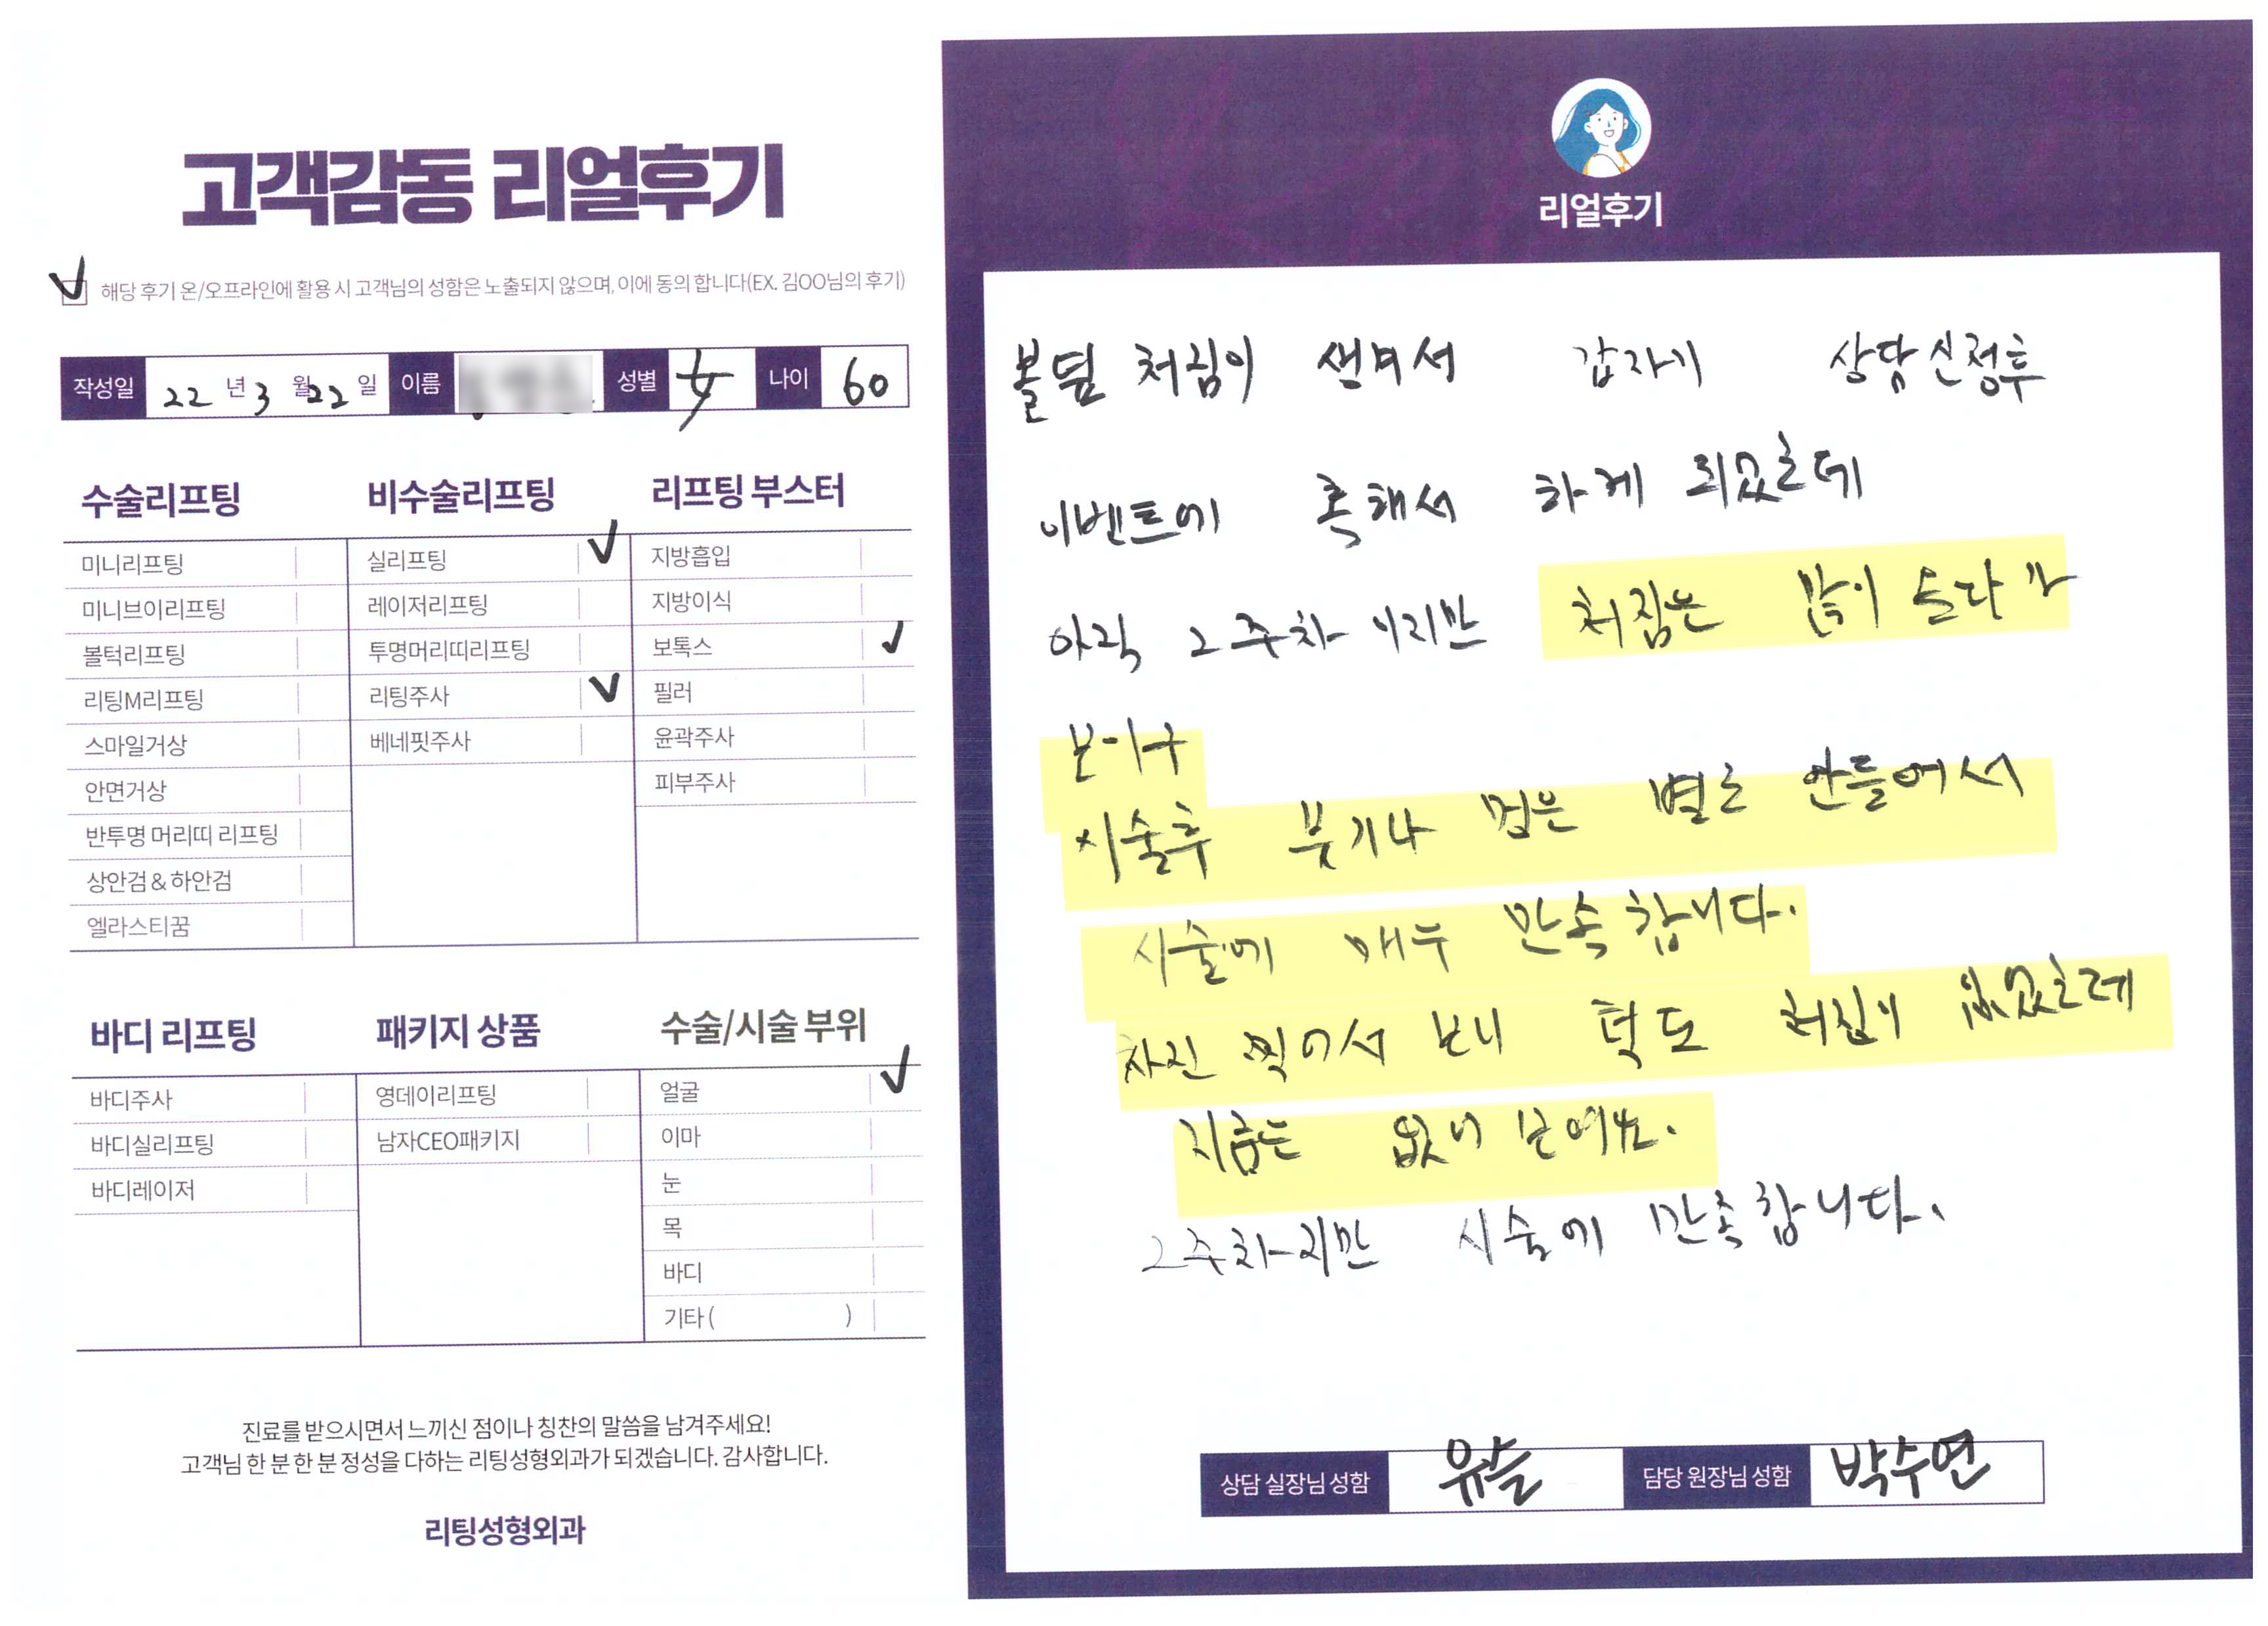 고객감동 리얼후기
해당 후기 온/오프라인에 활용 시 고객님의 성함은 노출되지 않으며, 이에 동의 합니다(EX. 김OO님의 후기)
작성일 22 년 3 월 22 일 이름 성별 女 나이 60
수술리프팅
미니리프팅
미니브이리프팅
볼턱리프팅
리팅M리프팅
스마일거상
안면거상
반투명 머리띠 리프팅
상안검 & 하안검
엘라스티꿈
비수술리프팅
실리프팅
레이저리프팅
투명머리띠리프팅
리팅주사
베네핏주사
리프팅 부스터
지방흡입
지방이식
보톡스
필러
윤곽주사
피부주사
바디 리프팅
바디주사
바디실리프팅
바디레이저
패키지 상품
영데이리프팅
남자CEO패키지
수술/시술 부위
얼굴
이마
눈
목
바디
기타 ( )
진료를 받으시면서 느끼신 점이나 칭찬의 말씀을 남겨주세요!
고객님 한 분 한 분 정성을 다하는 리팅성형외과가 되겠습니다. 감사합니다.
리팅성형외과
리얼후기
처짐이 생겨서 갑자기 상담신청후
이벤트에 혹해서 하게 되었는데
아직 2주차 이지만 처짐은 많이
시술후 붓기나 멍은 별로 안들어서
시술에 매우 만족합니다.
찍어서 보니 턱도 처짐이 있었는데
지금은 없어 보여요.
2주차지만 시술에 만족합니다.
상담 실장님 성함 담당 원장님 성함 박수연